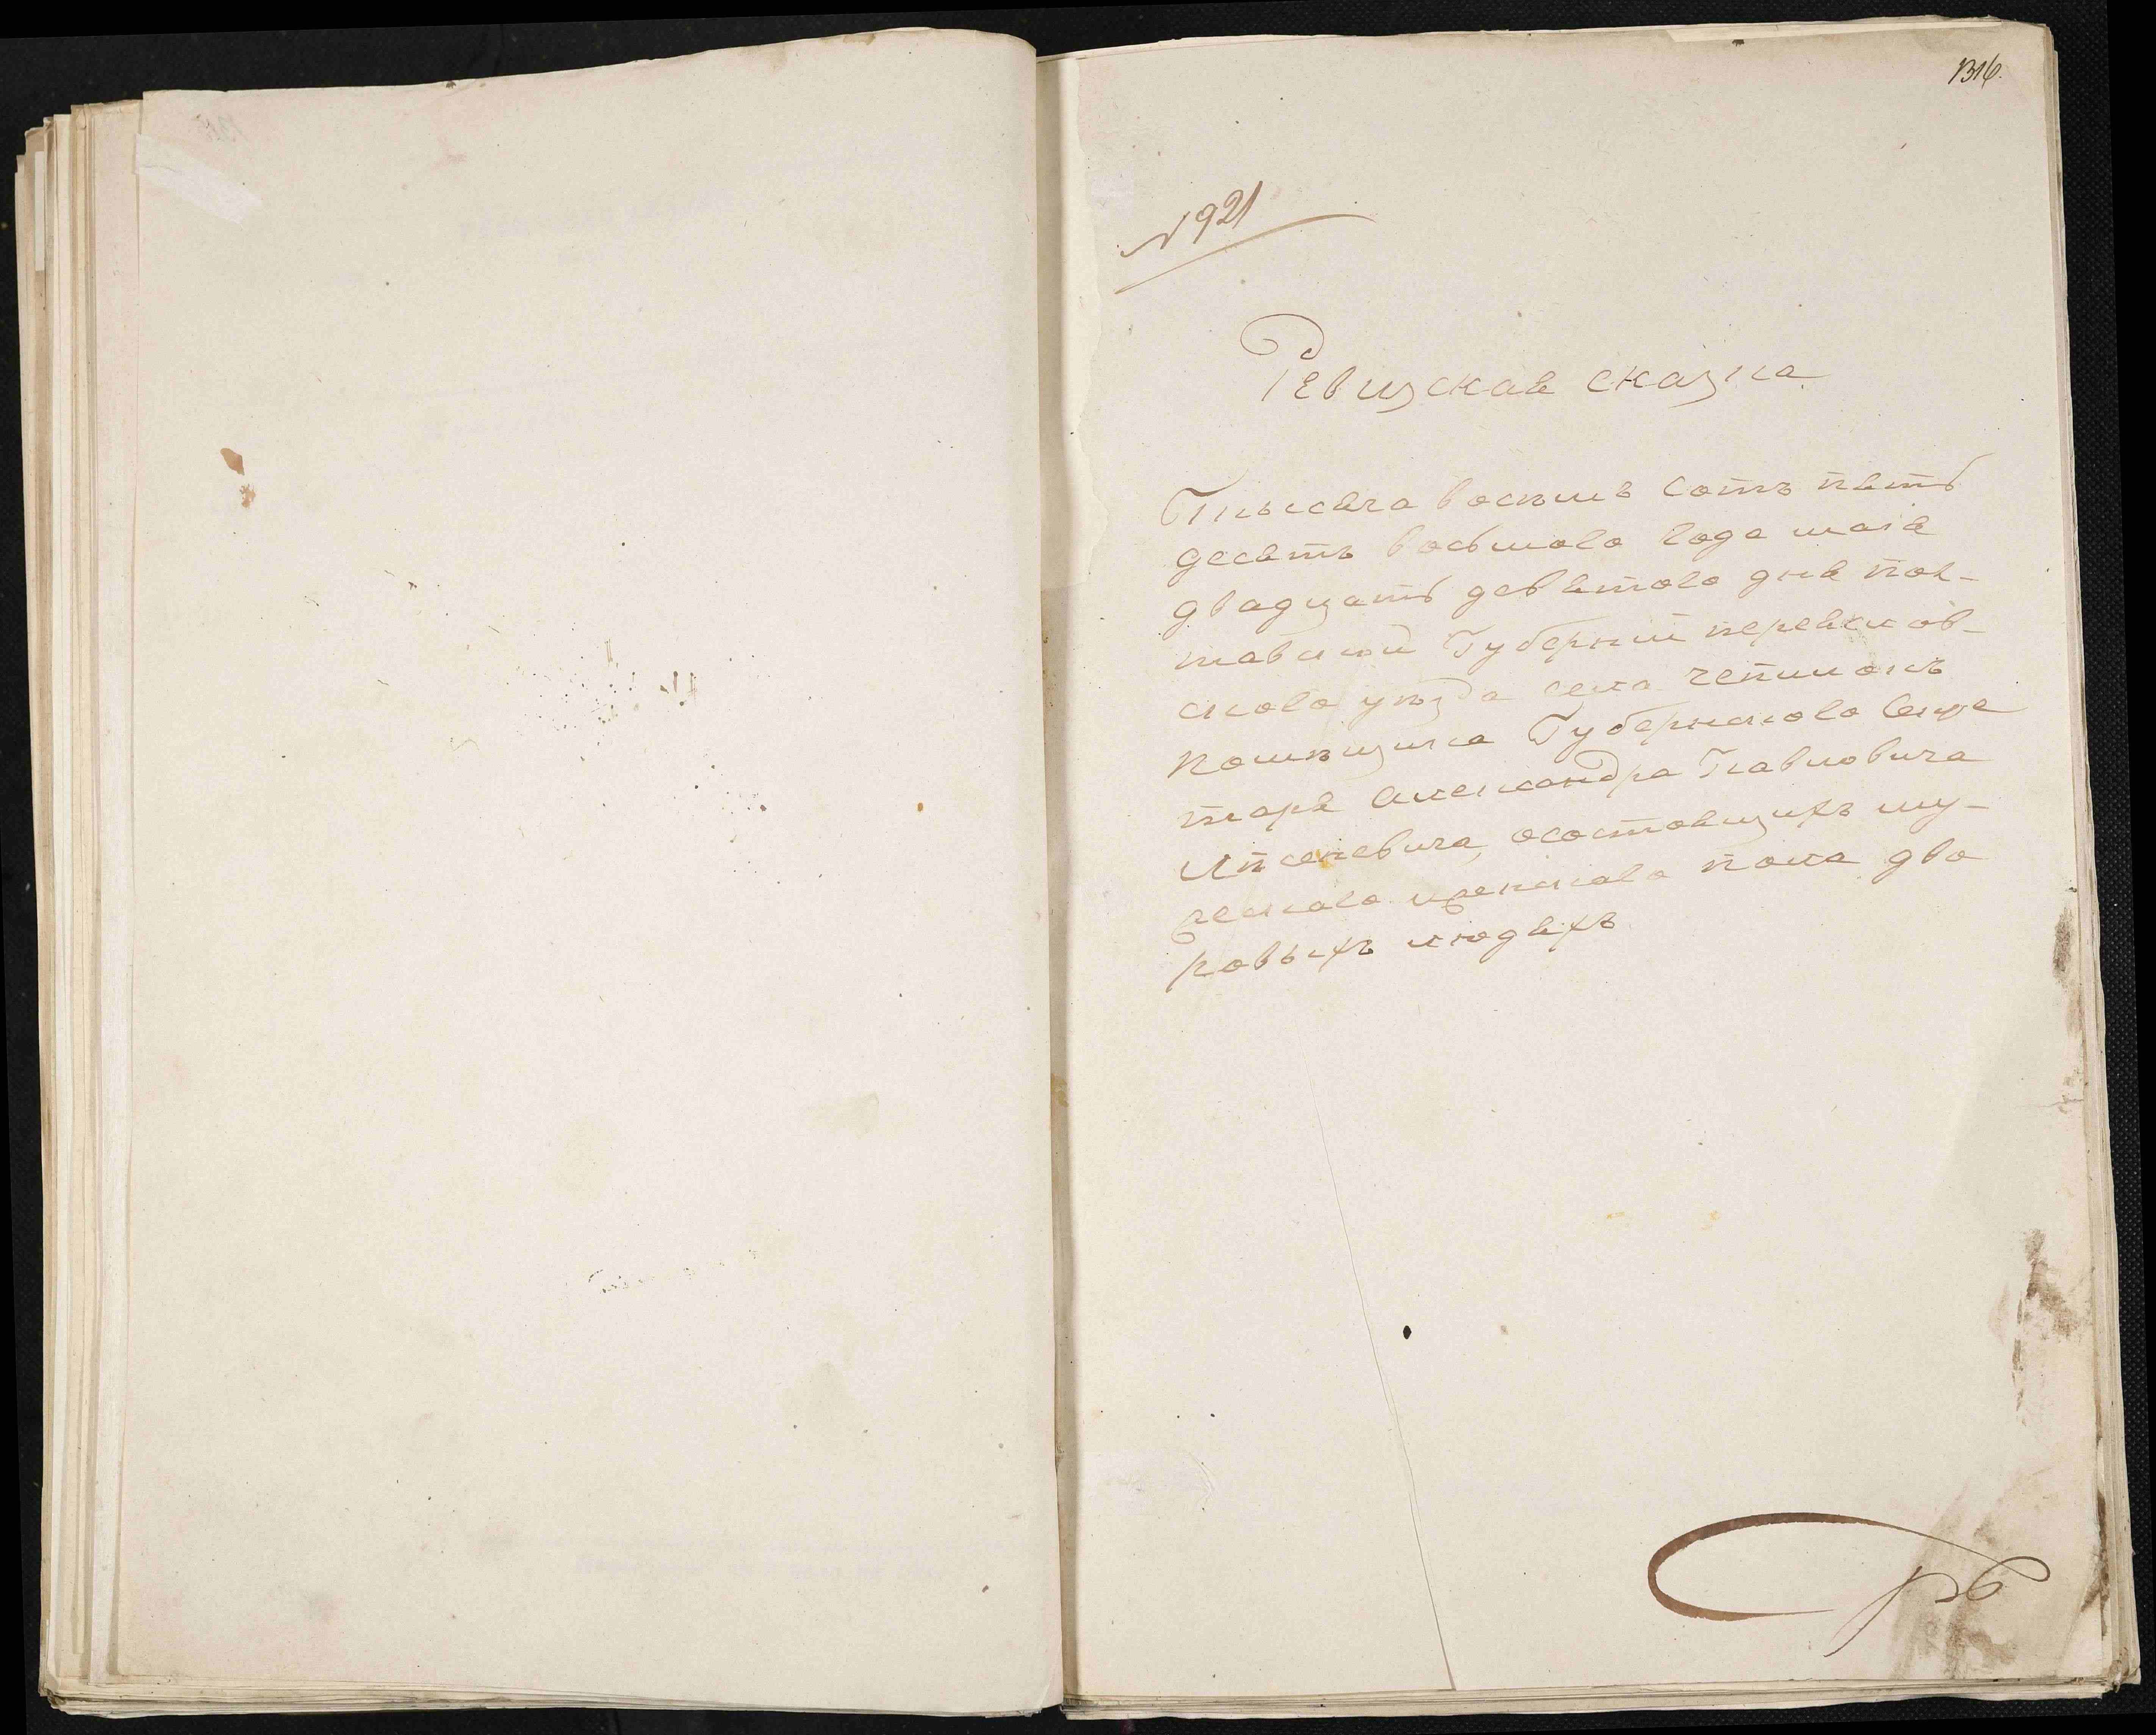 1316.
№ 921
Ревизская сказка
Тысяча восемъ сотъ пять
десятъ восьмого года мая
двадцать девятого дня пол-
тавской Губернии переяслов-
скова уезда села чепилокъ
помещика Губернскова Секре
таря Александра Павловича
осостоящихъ му-
жескаго иженскаго пола дво
ровыхъ людяхъ